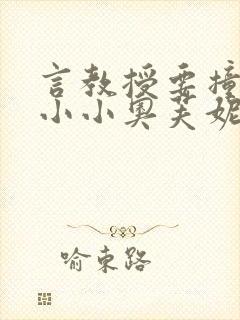 言教授要撞
小小奥芙妮
喻東路